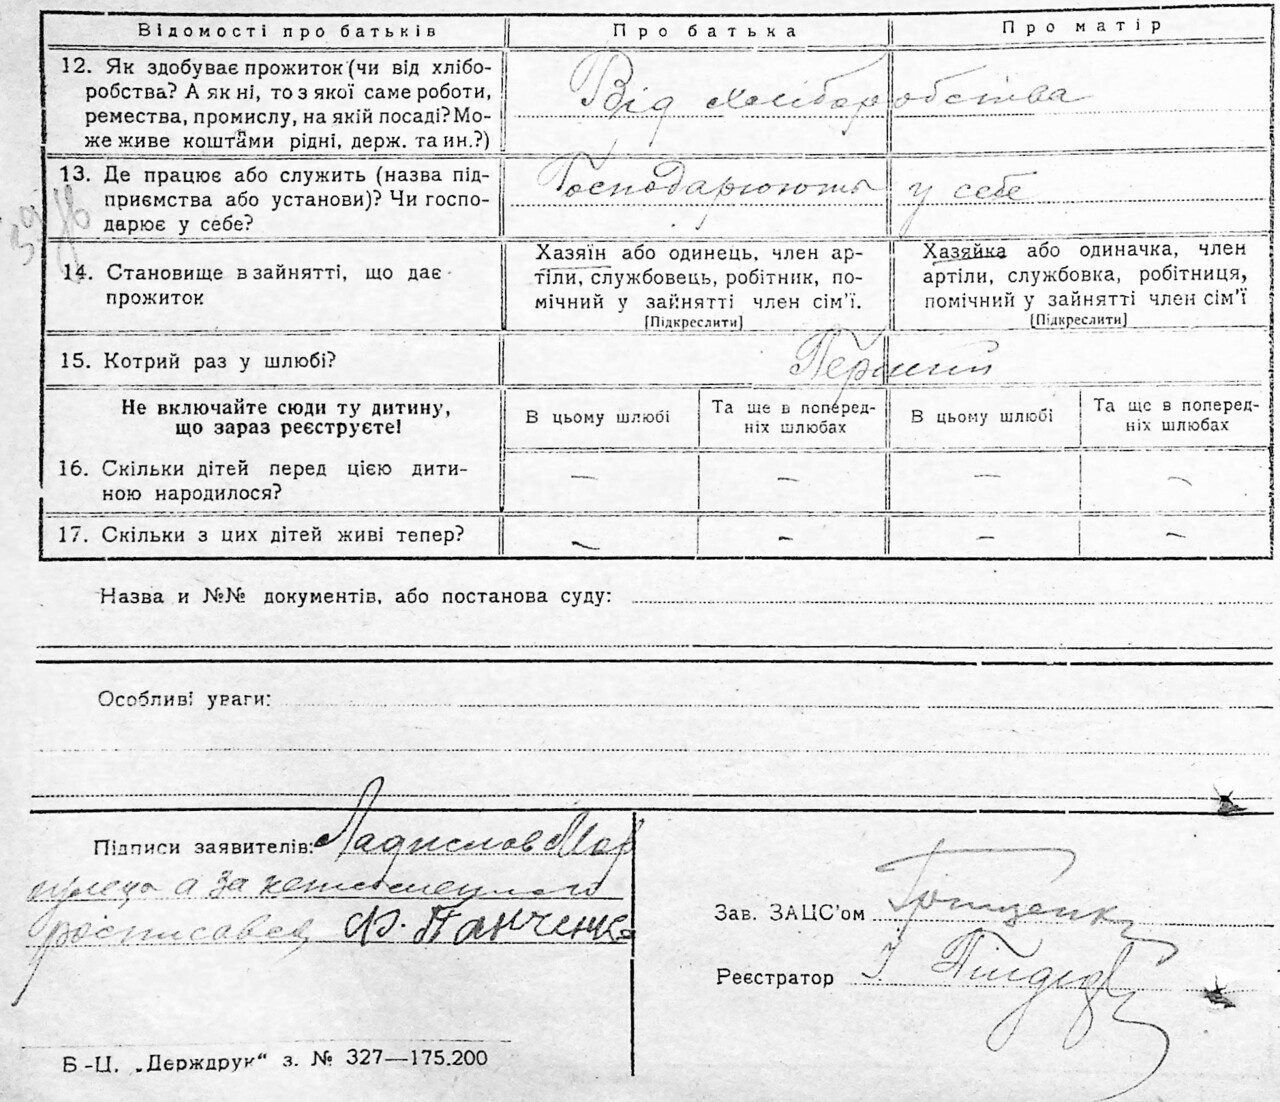 Відомості про батьків
Про батька
Про матір
12. Як здобуває прожиток (чи від хлібо-
робства? А як ні, то з якої саме роботи,
ремества, промислу, на якій посаді? Мо-
же живе коштами рідні, держ. та ин.?)
Від хліборобства
13. Де працює або служить (назва під-
приємства або установи)? Чи госпо-
дарює у себе?
Господарюють у себе
14. Становище в зайнятті, що дає
прожиток
Хазяїн або одинець, член ар-
тіли, службовець, робітник, по-
мічний у зайнятті член сім’ї.
[Підкреслити]
Хазяйка або одиначка, член
артіли, службовка, робітниця,
помічний у зайнятті член сім’ї
[Підкреслити]
15. Котрий раз у шлюбі?
Перший
Не включайте сюди ту дитину,
що зараз реєструєте!
В цьому шлюбі
Та ще в поперед-
ніх шлюбах
В цьому шлюбі
Та ще в поперед-
ніх шлюбах
16. Скільки дітей перед цією дити-
ною народилося?
— — — —
17. Скільки з цих дітей живі тепер?
— — — —
Назва и №№ документів, або постанова суду:
Особливі уваги:
Підписи заявителів:
а за
росписався Ф. Панченко
Зав. ЗАЦС’ом
Реєстратор
Б-Ц. „Держдрук“ з. № 327—175.200